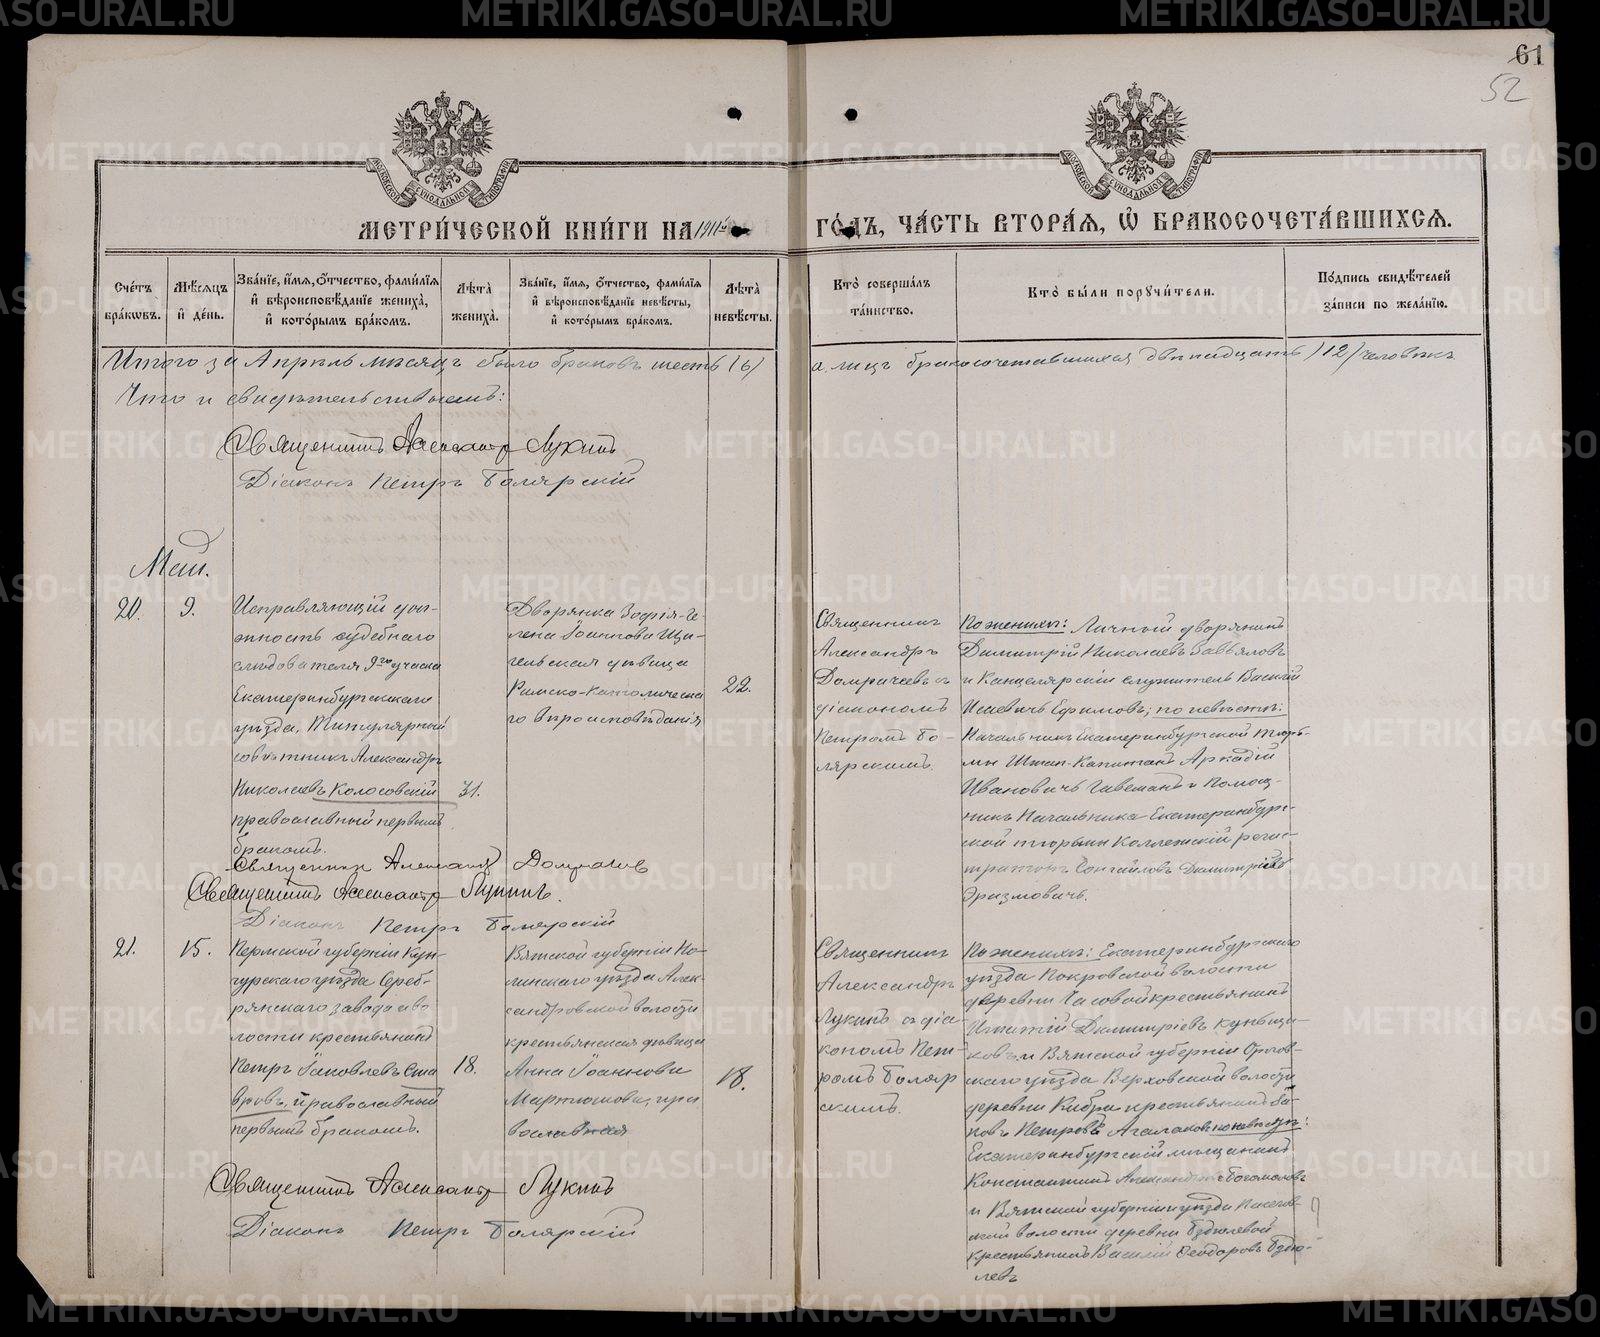 61
52
МЕТРИ́ЧЕСКОЙ КНИ́ГИ НА 1911й ГО́ДЪ, ЧА́СТЬ ВТОРА́Я, Ѽ БРАКОСОЧЕТА́ВШИХСЯ.
Сче́тъ бра́кѡвъ.
Мѣ́сяцъ и҆ де́нь.
Зва́нїе, и҆́мя, ѻ҆́тчество, фами́лїя и҆ вѣроисповѣ́данїе жениха̀, и҆ кото́рымъ бра́комъ.
Лѣ́та̀ жениха̀.
Зва́нїе, и҆́мя, ѻ҆́тчество, фами́лїя и҆ вѣроисповѣ́данїе невѣ́сты, и҆ кото́рымъ бра́комъ.
Лѣ́та̀ невѣ́сты.
Кто̀ соверша́лъ та́инство.
Кто̀ бы́ли порꙋчи́тели.
По́дпись свидѣ́телей за́писи по жела́нїю.
Итого за Апрѣль мѣсяцъ было браковъ шесть (6) а лицъ бракосочетавшихся двѣнадцать (12) человѣкъ
Что и свидѣтельствуемъ:
Священникъ Александръ Лукинъ
Діаконъ Петръ Болярскій
Май.
20.
9.
Исправляющій дол-
жность судебнаго
слѣдователя 9го участка
Екатеринбургскаго
уѣзда, Титулярный
совѣтникъ Александръ
Николаевъ Колосовскій
православный первымъ
бракомъ.
31.
Дворянка Зофія-Е-
лена Іоаннова Щи-
гельская дѣвица
Римско-Католическа
го вѣроисповѣданія
22.
Священникъ
Александръ
Домрачевъ съ
діакономъ
Петромъ Бо-
лярскимъ.
По женихѣ: Личный дворянинъ
Димитрій Николаевъ Завьяловъ
и Канцелярскій служитель Василій
Ефимовъ; по невѣстѣ:
Начальникъ Екатеринбургской тюрь-
мы Штап-Капитанъ Аркадій
Ивановичъ и Помощ-
никъ Начальника Екатеринбург-
ской тюрьмы Коллежскій регис-
траторъ Димитрій
Эразмовичъ.
Священникъ Александръ Домрачевъ
Священникъ Александръ Лукинъ.
Діаконъ Петръ Болярскій
21.
15.
Пермской губерніи Кун-
гурскаго уѣзда Сереб-
рянскаго завода и во
лости крестьянинъ
Петръ Іаковлевъ Ста
вровъ, православный
первымъ бракомъ.
18.
Вятской губерніи Но-
линскаго уѣзда Алек-
сандровской волости
крестьянская дѣвица
Анна Іоаннова
Мартюшова, пра
вославная
18.
Священникъ
Александръ
Лукинъ съ діа-
кономъ Пет-
ромъ Боляр
скимъ.
По женихѣ: Екатеринбургскаго
уѣзда Покровской волости
деревни Часовой крестьянинъ
Игнатій Димитріевъ Куньщи-
ковъ и Вятской губерніи Орлов-
скаго уѣзда Верховской волости
деревни крестьянинъ
Петровъ Агалаковъ по невѣстѣ:
Екатеринбургскій мѣщанинъ
Константинъ Александровъ Богомоловъ
и Вятской губерніи и уѣзда
волости деревни Бздюлевой
крестьянинъ Василій Ѳеодоровъ Бздю-
левъ
Священникъ Александръ Лукинъ
Діаконъ Петръ Болярскій
METRIKI.GASO-URAL.RU